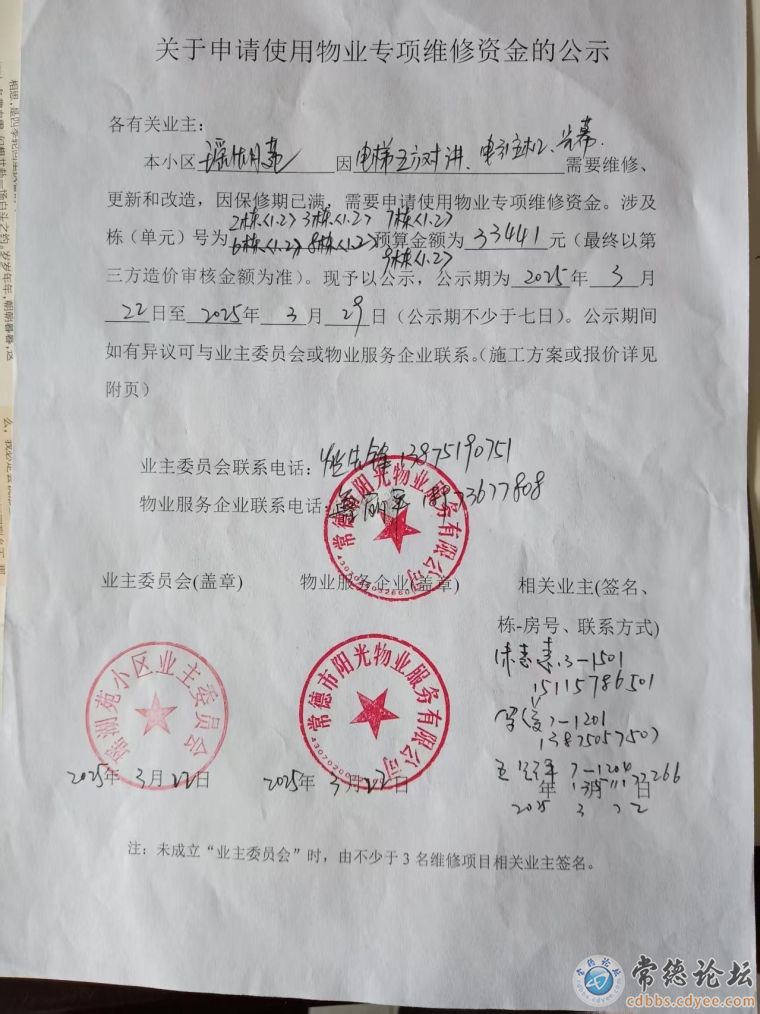 关于申请使用物业专项维修资金的公示
各有关业主：
本小区 因电梯五方对讲、 光幕 需要维修、
更新和改造，因保修期已满，需要申请使用物业专项维修资金。涉及
2栋(1.2) 3栋(1.2) 7栋(1.2)
栋（单元）号为6栋(1.2) 8栋(1.2)预算金额为33441元（最终以第
9栋(1.2)
三方造价审核金额为准）。现予以公示，公示期为2025年3月
22日至2025年3月29日（公示期不少于七日）。公示期间
如有异议可与业主委员会或物业服务企业联系。（施工方案或报价详见
附页）
业主委员会联系电话： 13875190751
物业服务企业联系电话： 73677808
常德市阳光物业服务有限公司
业主委员会(盖章) 物业服务企业(盖章) 相关业主(签名、
栋-房号、联系方式)
3-1501
15115786501
7-1201
13875057507
7-1204
瑶洲苑小区业主委员会
常德市阳光物业服务有限公司
2025年3月22日 2025年3月22日 年 月 日
2025 3 22
注：未成立“业主委员会”时，由不少于3名维修项目相关业主签名。
常德论坛
cdbbs.cdyee.com